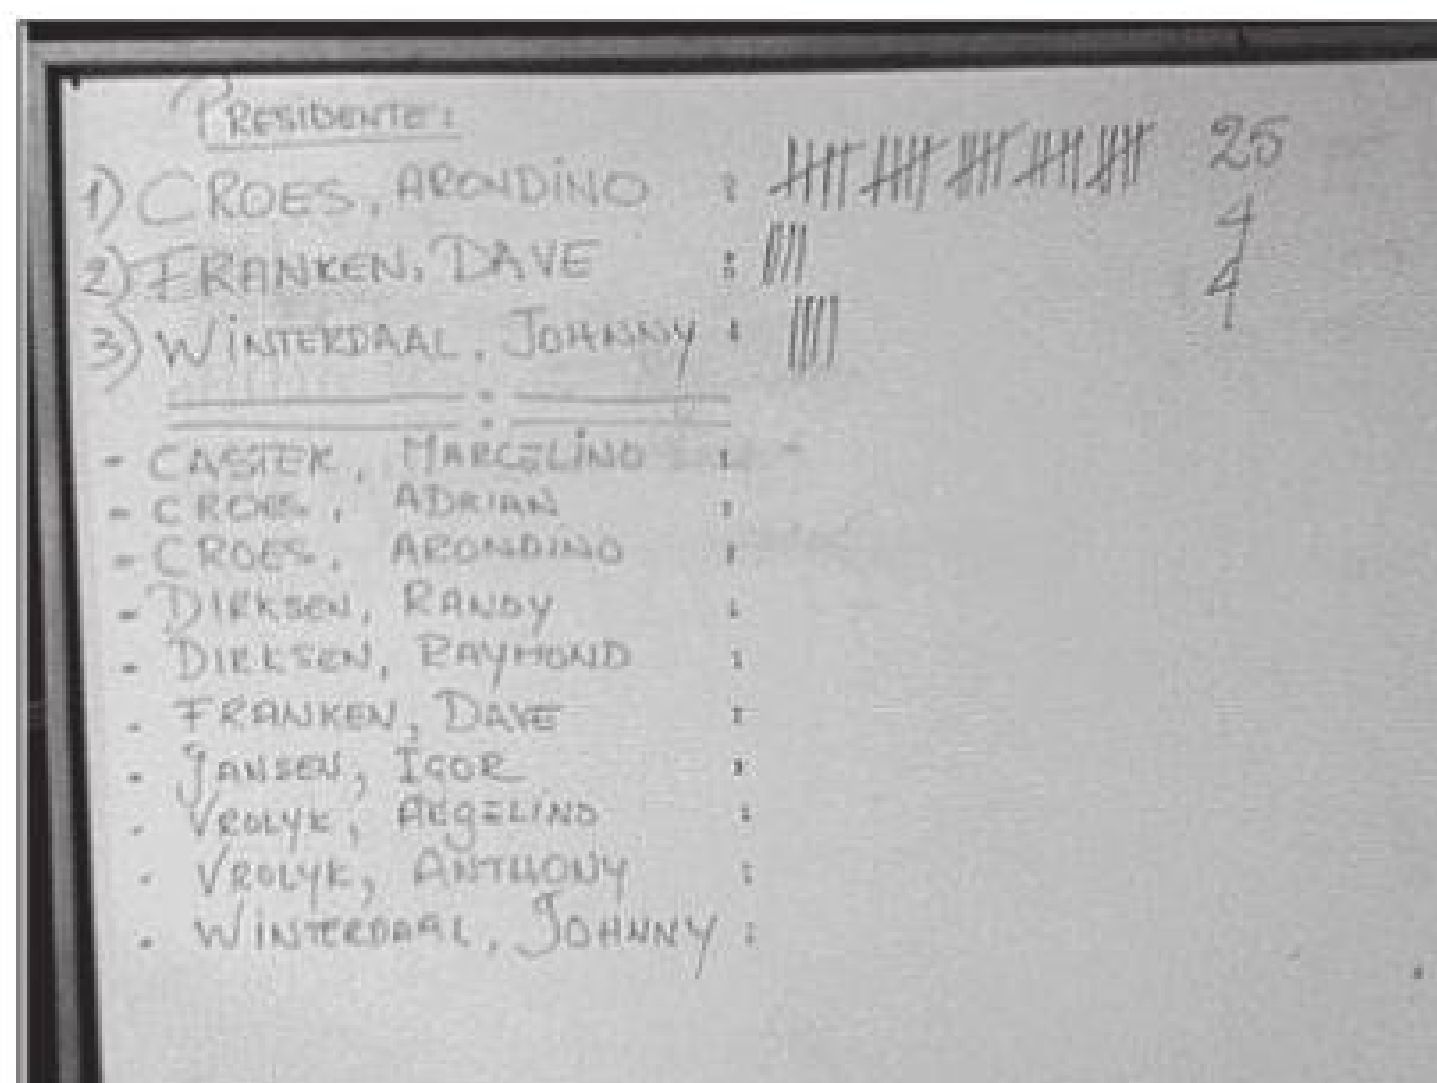 PRESIDENTE:
1) CROES, ARONDINO : 25
2) FRANKEN, DAVE : 4
3) WINTERDAAL, JOHNNY : 4
- CASTER, MARCELINO :
- CROES, ADRIAN :
- CROES, ARONDINO :
- DIRKSEN, RANDY :
- DIRKSEN, RAYMOND :
- FRANKEN, DAVE :
- JANSEN, IGOR :
- VROLYK, ARGELINO :
- VROLYK, ANTHONY :
- WINTERDAAL, JOHNNY :